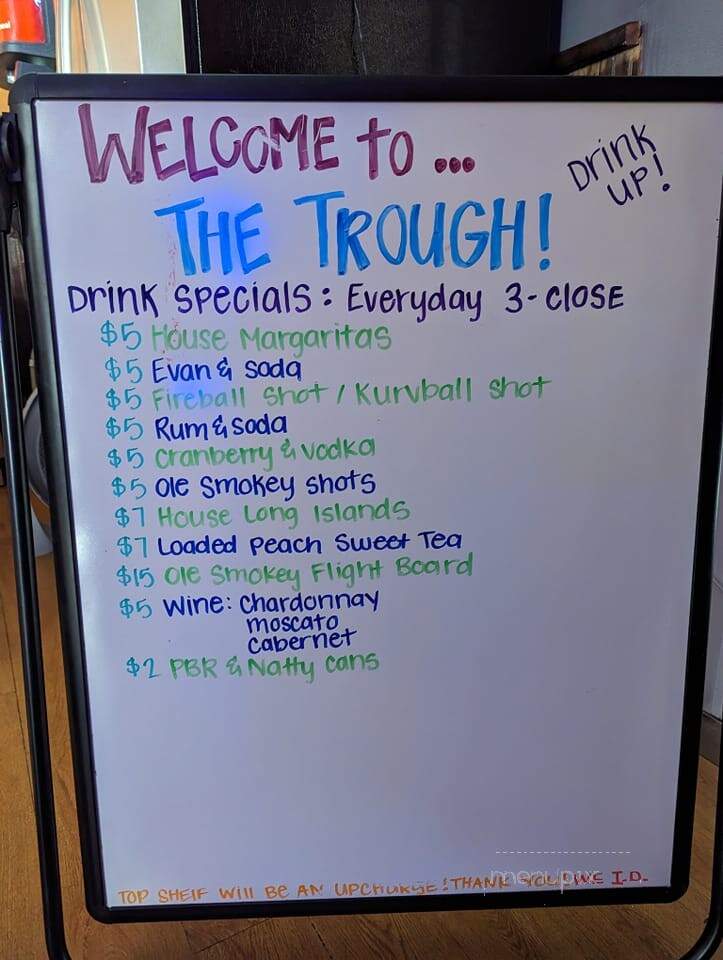 WELCOME to ...
Drink UP!
THE TROUGH!
Drink Specials: Everyday 3-CLOSE
$5 House Margaritas
$5 Evan & Soda
$5 Fireball Shot / Kurvball shot
$5 Rum & Soda
$5 Cranberry & Vodka
$5 Ole Smokey Shots
$7 House Long Islands
$7 Loaded Peach Sweet Tea
$15 Ole Smokey Flight Board
$5 Wine: Chardonnay
moscato
cabernet
$2 PBR & Natty cans
TOP SHElF Will BE AN UPCHURGE! THANK YOU, WE I.D.
menupix